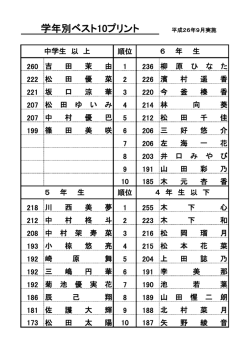 学年別ベスト10プリント 平成26年9月実施
中学生 以 上 順位 6 年 生
260 吉 田 茉 由 1 236 柳 原 ひ な た
222 松 田 優 菜 2 226 濱 村 遥 香
221 坂 口 涼 華 3 220 今 釜 榛 香
207 松 田 ゆ い み 4 214 林 向 葵
207 中 村 優 巴 5 212 松 田 千 佳
199 篠 田 美 咲 6 206 三 好 悠 介
7 206 左 海 一 花
8 203 井 口 み や び
9 191 山 田 彩 乃
10 185 木 元 杏 香
5 年 生 順位 4 年 生 以 下
218 川 西 美 夢 1 255 木 下 心
212 中 村 柊 斗 2 223 木 下 和
208 中 村 架 寿 菜 3 216 松 岡 瑠 月
193 小 椋 悠 亮 4 215 松 本 花 菜
192 﨑 原 舞 5 204 上 田 誌 乃
192 三 嶋 円 華 6 191 李 美 那
192 菊 池 優 実 花 7 190 池 若 葉
186 辰 己 翔 8 189 山 田 惺 二 朗
181 佐 護 大 輝 9 188 北 村 菜 月
173 松 田 太 陽 10 187 矢 野 綾 音